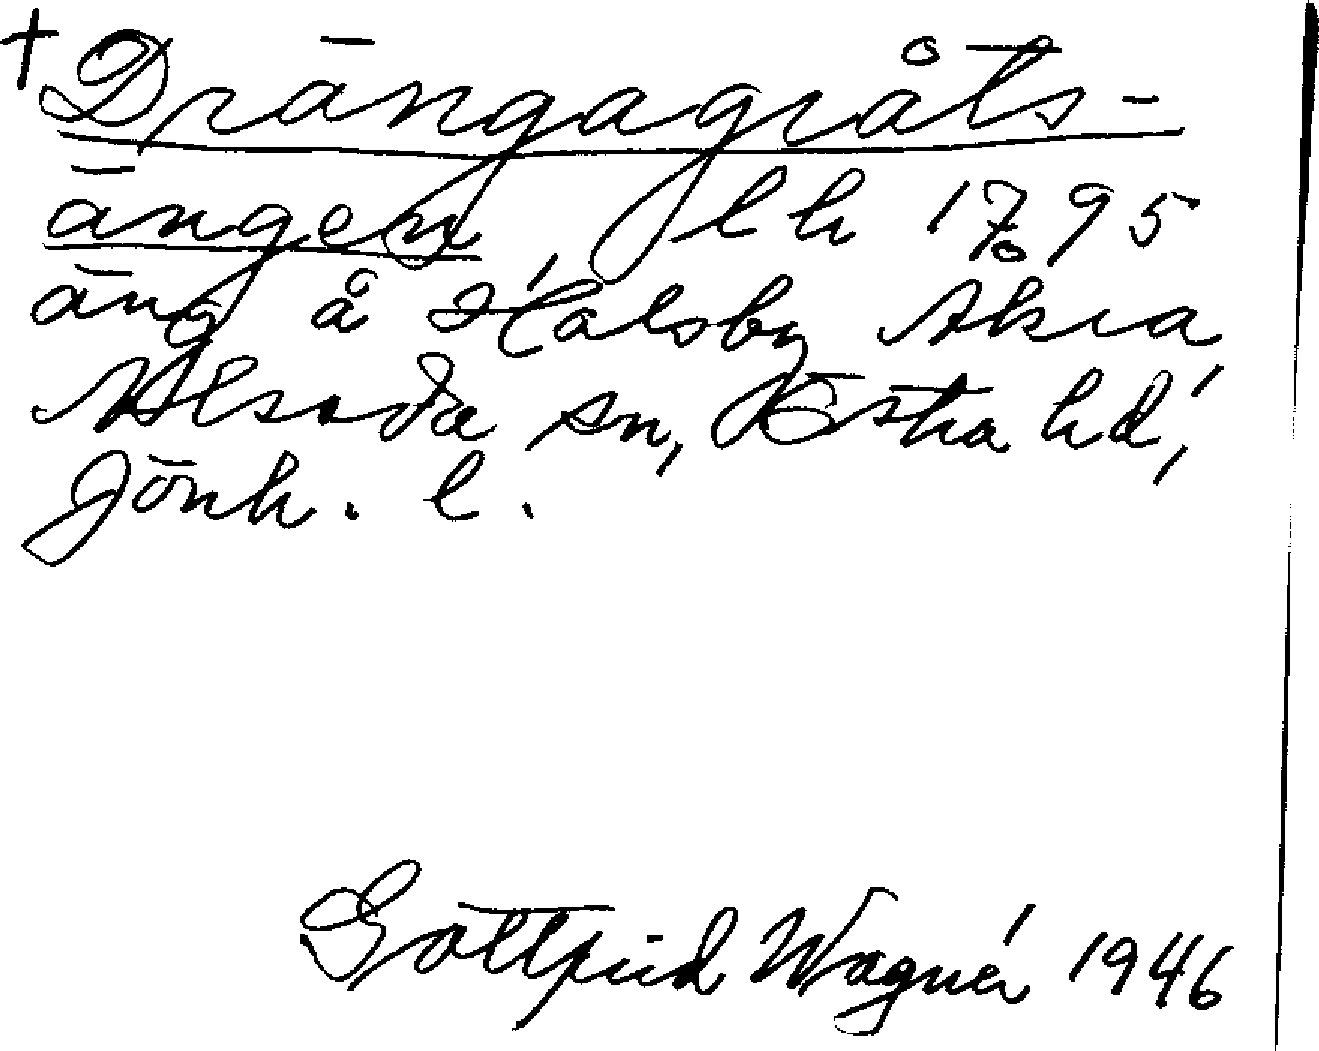 † Drängagråts-
ängen lh 1795
äng å Hålsby Akra
Alseda sn, Östra hd,
Jönk. l.
Gottfrid Wagnér 1946